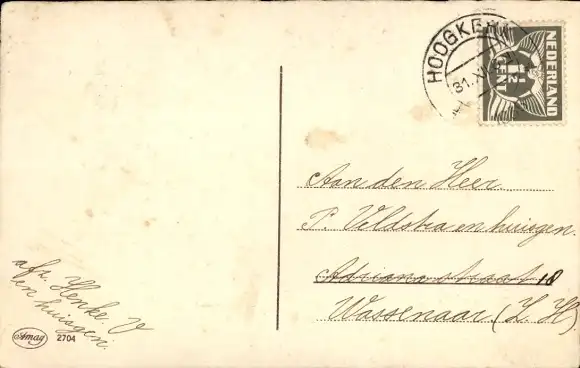 HOOGKER
31.XII
NEDERLAND
1½
CENT
Aan den Heer
P. Veldstra en huisgen.
Adriana straat 18
Wassenaar (Z. H)
afz. Henke. V
en huisgen.
Amag 2704